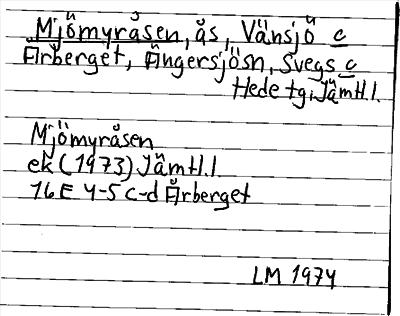 Mjömyråsen, ås, Vänsjö c
Årberget, Ängersjösn, Svegs c
Hede tg, Jämtl.l.
Mjömyråsen
ek (1973) Jämtl.l
16E 4-5 c-d Årberget
LM 1974